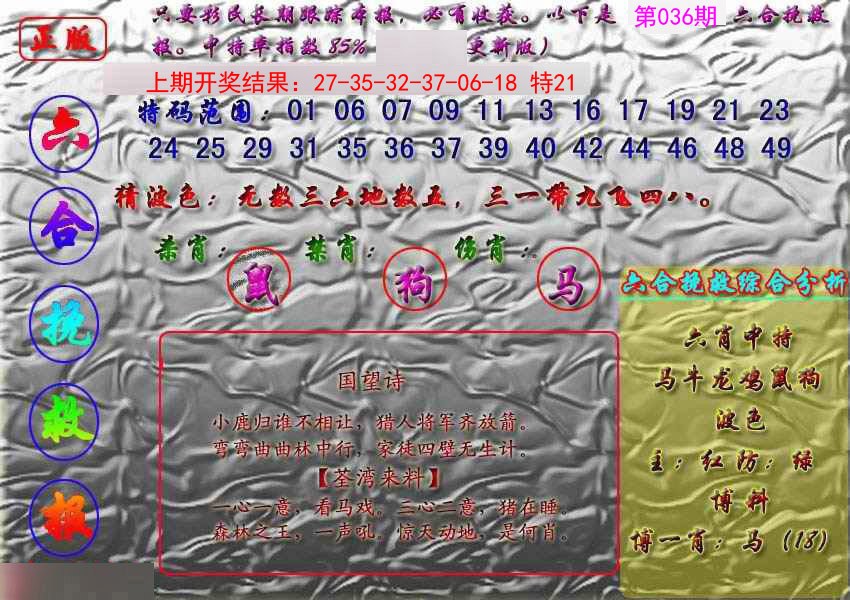 正版
只要彩民长期跟踪本报，必有收获。以下是 第036期 六合挽救
报。中特率指数85% 更新版）
上期开奖结果：27-35-32-37-06-18 特21
特码范围：01 06 07 09 11 13 16 17 19 21 23
24 25 29 31 35 36 37 39 40 42 44 46 48 49
猜波色：无数三六地数五，三一带九飞四八。
杀肖：鼠 禁肖：狗 伤肖：马
六合挽救报
国望诗
小鹿归谁不相让，猎人将军齐放箭。
弯弯曲曲林中行，家徒四壁无生计。
【荃湾来料】
一心一意，看马戏。三心二意，猪在睡。
森林之王，一声吼。惊天动地，是何肖。
六合挽救综合分析
六肖中特
马牛龙鸡鼠狗
波色
主：红 防：绿
博料
博一肖：马（18）